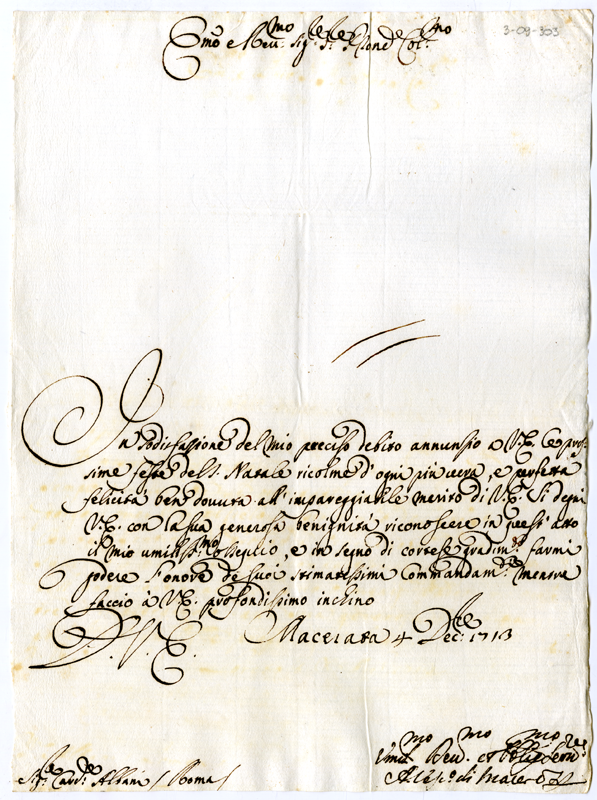 3-09-303
Emo e Reu:mo Sig:re P:re Colmo
In sodisfassione del mio preciso debito annunsio a V.E. le pros-
sime feste del S. Natale ricolme d'ogni più uera, e perfetta
felicità ben douuta all'impareggiabile merito di V.E. Si degni
V.E. con la sua generosa benignità riconoscere in quest'atto
il mio umiliss:mo ossequio, e in segno di cortese gradim:to farmi
godere l'onore de suoi stimatissimi Commandam:ti mentre
faccio à V.E. profondissimo inchino
D. V. E. Macerata 4 Dec:re 1713
Sig:re Card:le Albani / Roma /
Umil:mo Deu:mo et Obblig:mo Seru:re